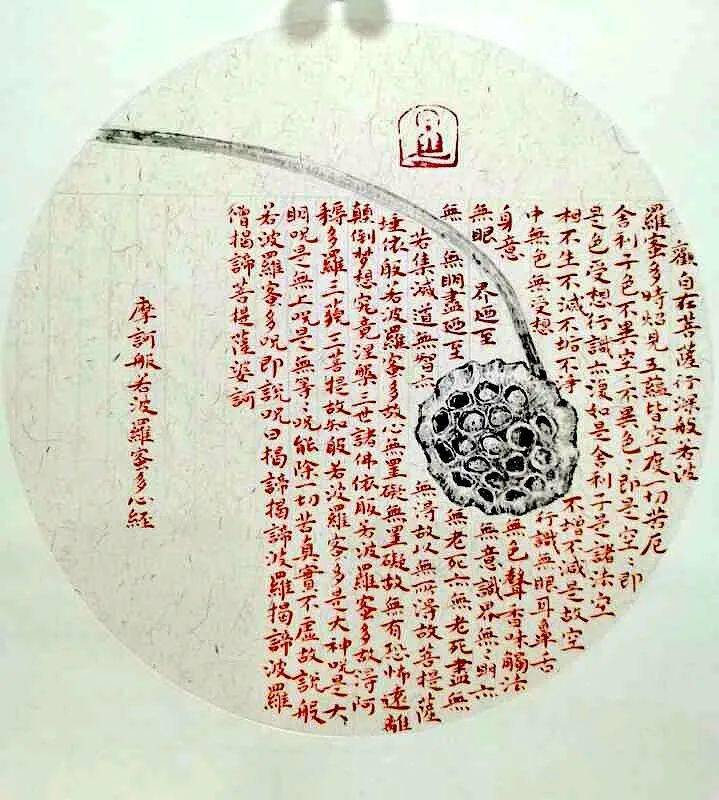 觀自在菩薩行深般若波
羅蜜多時炤見五蘊皆空度一切苦厄
舍利子色不異空〻不異色〻即是空〻即
是色受想行識亦復如是舍利子是諸法空
相不生不滅不垢不淨 不增不減是故空
中無色無受想 行識無眼耳鼻舌
身意 無色聲香味觸法
無眼 界廼至 無意識界無〻明亦
無〻明盡廼至 無老死亦無老死盡無
苦集滅道無智亦 無得故以無所得故菩提薩
埵依般若波羅蜜多故心無罣礙無罣礙故無有恐怖遠離
顛倒梦想究竟涅槃三世諸佛依般若波羅蜜多故得阿
耨多羅三藐三菩提故知般若波羅蜜多是大神呪是大
明呪是無上呪是無等〻呪能除一切苦真實不虛故說般
若波羅蜜多呪即說呪曰揭諦揭諦波羅揭諦波羅
僧揭諦菩提薩婆訶
摩訶般若波羅蜜多心經